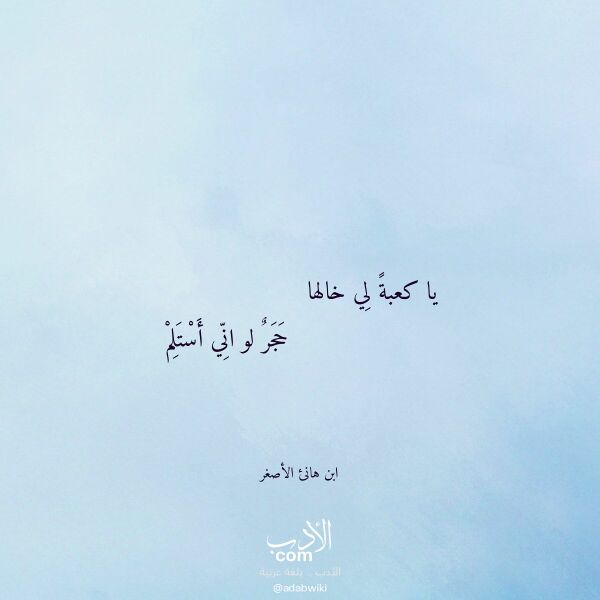 يا كعبةً لِي خالها
حَجَرٌ لو انِّي أَسْتَلِمْ
ابن هانئ الأصغر
الأدب
com
الأدب .. بلغة عربية
@adabwiki